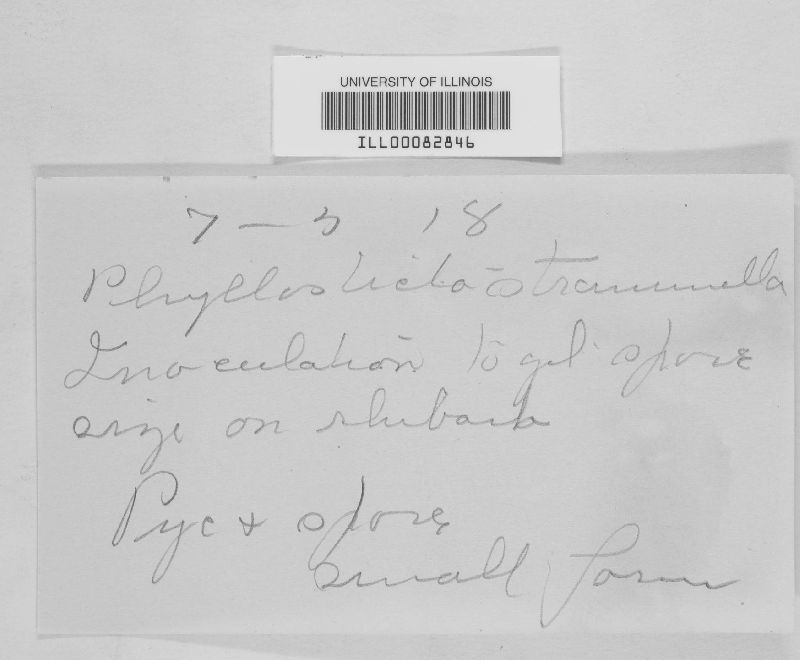 UNIVERSITY OF ILLINOIS
ILL00082846
7 - 3 18
Phyllosticta straminella
Inoculation to get spore
size on rhubarb
Pyc + spore
small form